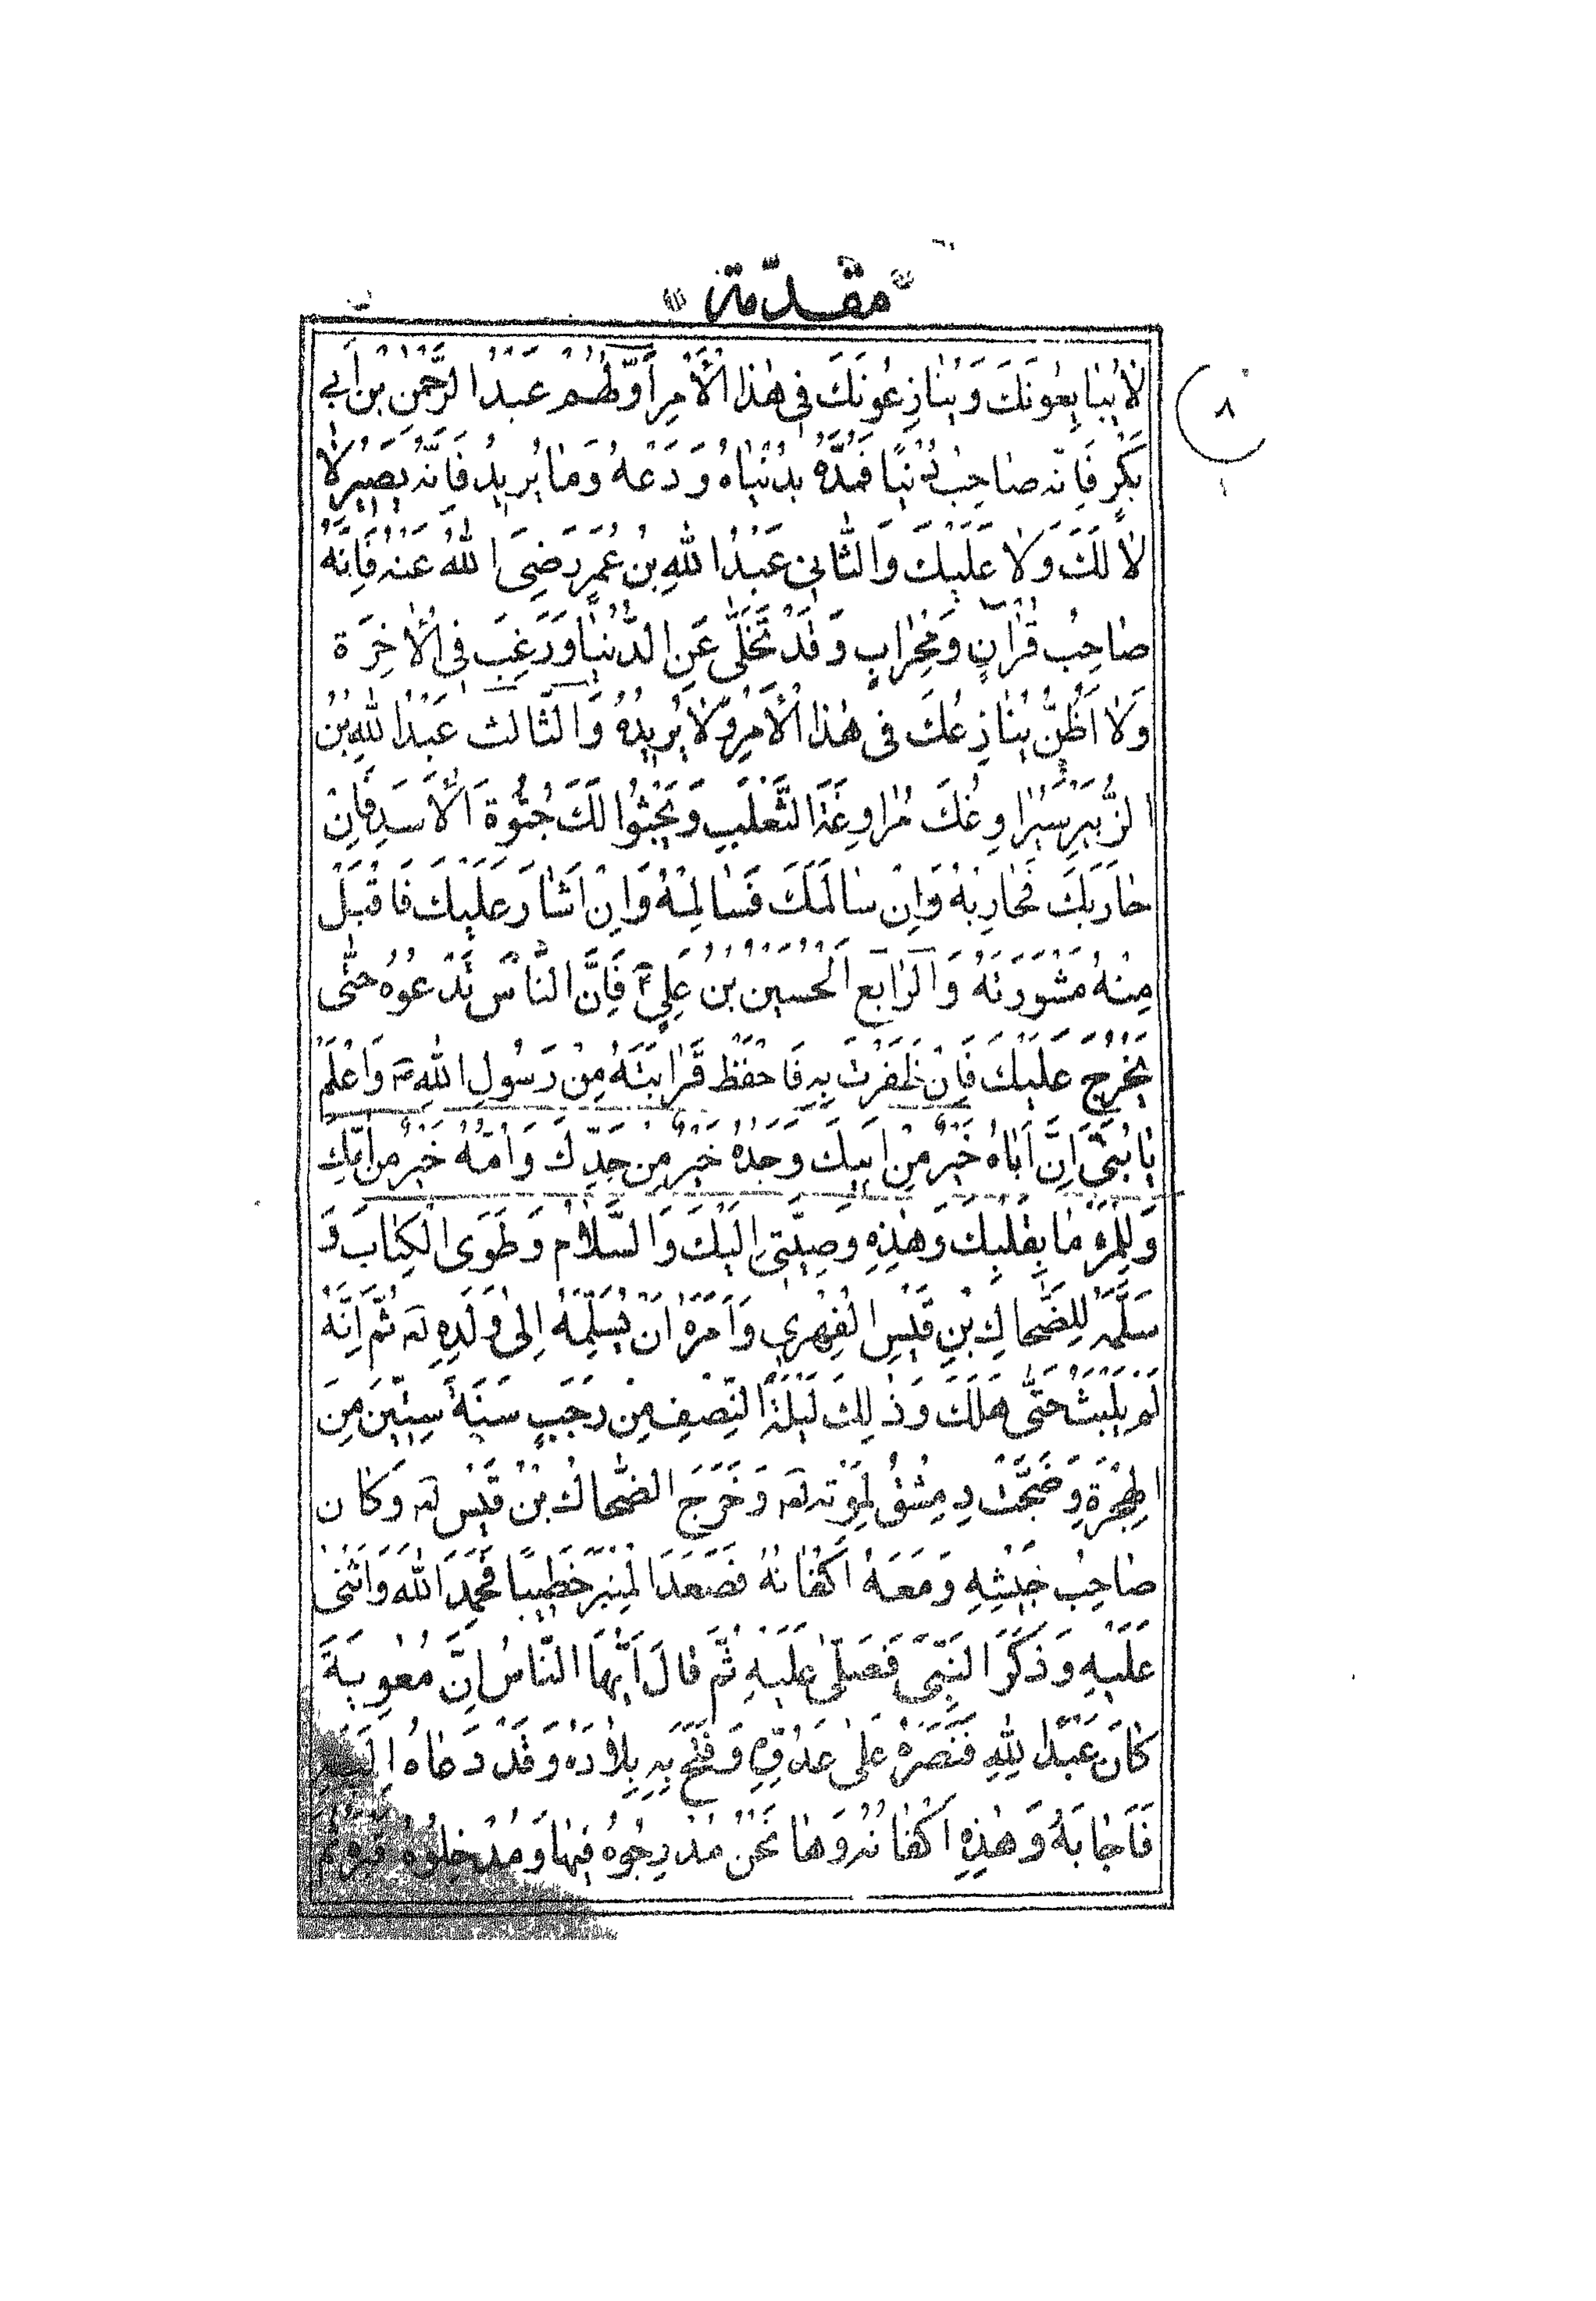 مقدّمة
٨
لَا يُبَايِعُونَكَ وَيُنَازِعُونَكَ فِي هٰذَا الْأَمْرِ أَوَّلُهُمْ عَبْدُ الرَّحْمٰنِ بْنُ أَبِي
بَكْرٍ فَإِنَّهُ صَاحِبُ دُنْيًا فَمُدَّهُ بِدُنْيَاهُ وَدَعْهُ وَمَا يُرِيدُ فَإِنَّهُ يَصِيرُ لَا
لَا لَكَ وَلَا عَلَيْكَ وَالثَّانِي عَبْدُ اللهِ بْنُ عُمَرَ رَضِيَ اللهُ عَنْهُ فَإِنَّهُ
صَاحِبُ قُرْآنٍ وَمِحْرَابٍ وَقَدْ تَخَلَّى عَنِ الدُّنْيَا وَرَغِبَ فِي الْآخِرَةِ
وَلَا أَظُنُّ يُنَازِعُكَ فِي هٰذَا الْأَمْرِ وَلَا يُرِيدُهُ وَالثَّالِثُ عَبْدُ اللهِ بْنُ
الزُّبَيْرِ سَيُرَاوِغُكَ مُرَاوَغَةَ الثَّعْلَبِ وَيَجْثُوا لَكَ جُثْوَةَ الْأَسَدِ فَإِنْ
حَارَبَكَ فَحَارِبْهُ وَإِنْ سَالَمَكَ فَسَالِمْهُ وَإِنْ أَشَارَ عَلَيْكَ فَاقْبَلْ
مِنْهُ مَشْوَرَتَهُ وَالرَّابِعُ الْحُسَيْنُ بْنُ عَلِيٍّ ۴ فَإِنَّ النَّاسَ تَدْعُوهُ حَتَّى
يَخْرُجَ عَلَيْكَ فَإِنْ ظَفَرْتَ بِهِ فَاحْفَظْ قَرَابَتَهُ مِنْ رَسُولِ اللهِ ص وَاعْلَمْ
يَا بُنَيَّ أَنَّ أَبَاهُ خَيْرٌ مِنْ أَبِيكَ وَجَدُّهُ خَيْرٌ مِنْ جَدِّكَ وَأُمُّهُ خَيْرٌ مِنْ أُمِّكَ
وَلِلْمَرْءِ مَا بِقَلْبِكَ وَهٰذِهِ وَصِيَّتِي إِلَيْكَ وَالسَّلَامُ وَطَوَى الْكِتَابَ وَ
سَلَّمَهُ لِلضَّحَّاكِ بْنِ قَيْسٍ الْفِهْرِيِّ وَأَمَرَهُ أَنْ يُسَلِّمَهُ إِلَى وَلَدِهِ لَهْ ثُمَّ إِنَّهُ
لَمْ يَلْبَثْ حَتَّى هَلَكَ وَذٰلِكَ لَيْلَةُ النِّصْفِ مِنْ رَجَبٍ سَنَةَ سِتِّينَ مِنَ
الْهِجْرَةِ وَضَجَّتْ دِمِشْقُ لِمَوْتِهِ لَعْ وَخَرَجَ الضَّحَّاكُ بْنُ قَيْسٍ لَهْ وَكَانَ
صَاحِبُ جَيْشِهِ وَمَعَهُ أَكْفَانُهُ فَصَعَدَ الْمِنْبَرَ خَطِيبًا فَحَمِدَ اللهَ وَأَثْنَى
عَلَيْهِ وَذَكَرَ النَّبِيَّ فَصَلَّى عَلَيْهِ ثُمَّ قَالَ أَيُّهَا النَّاسُ إِنَّ مُعٰوِيَةَ
كَانَ عَبْدًا لِلّٰهِ فَنَصَرَهُ عَلَى عَدُوِّهِ وَفَتَحَ بِهِ بِلَادَهُ وَقَدْ دَعَاهُ إِلَيْهِ
فَأَجَابَهُ وَهٰذِهِ أَكْفَانُهُ وَهَا نَحْنُ مُدْرِجُوهُ فِيهَا وَمُدْخِلُوهُ